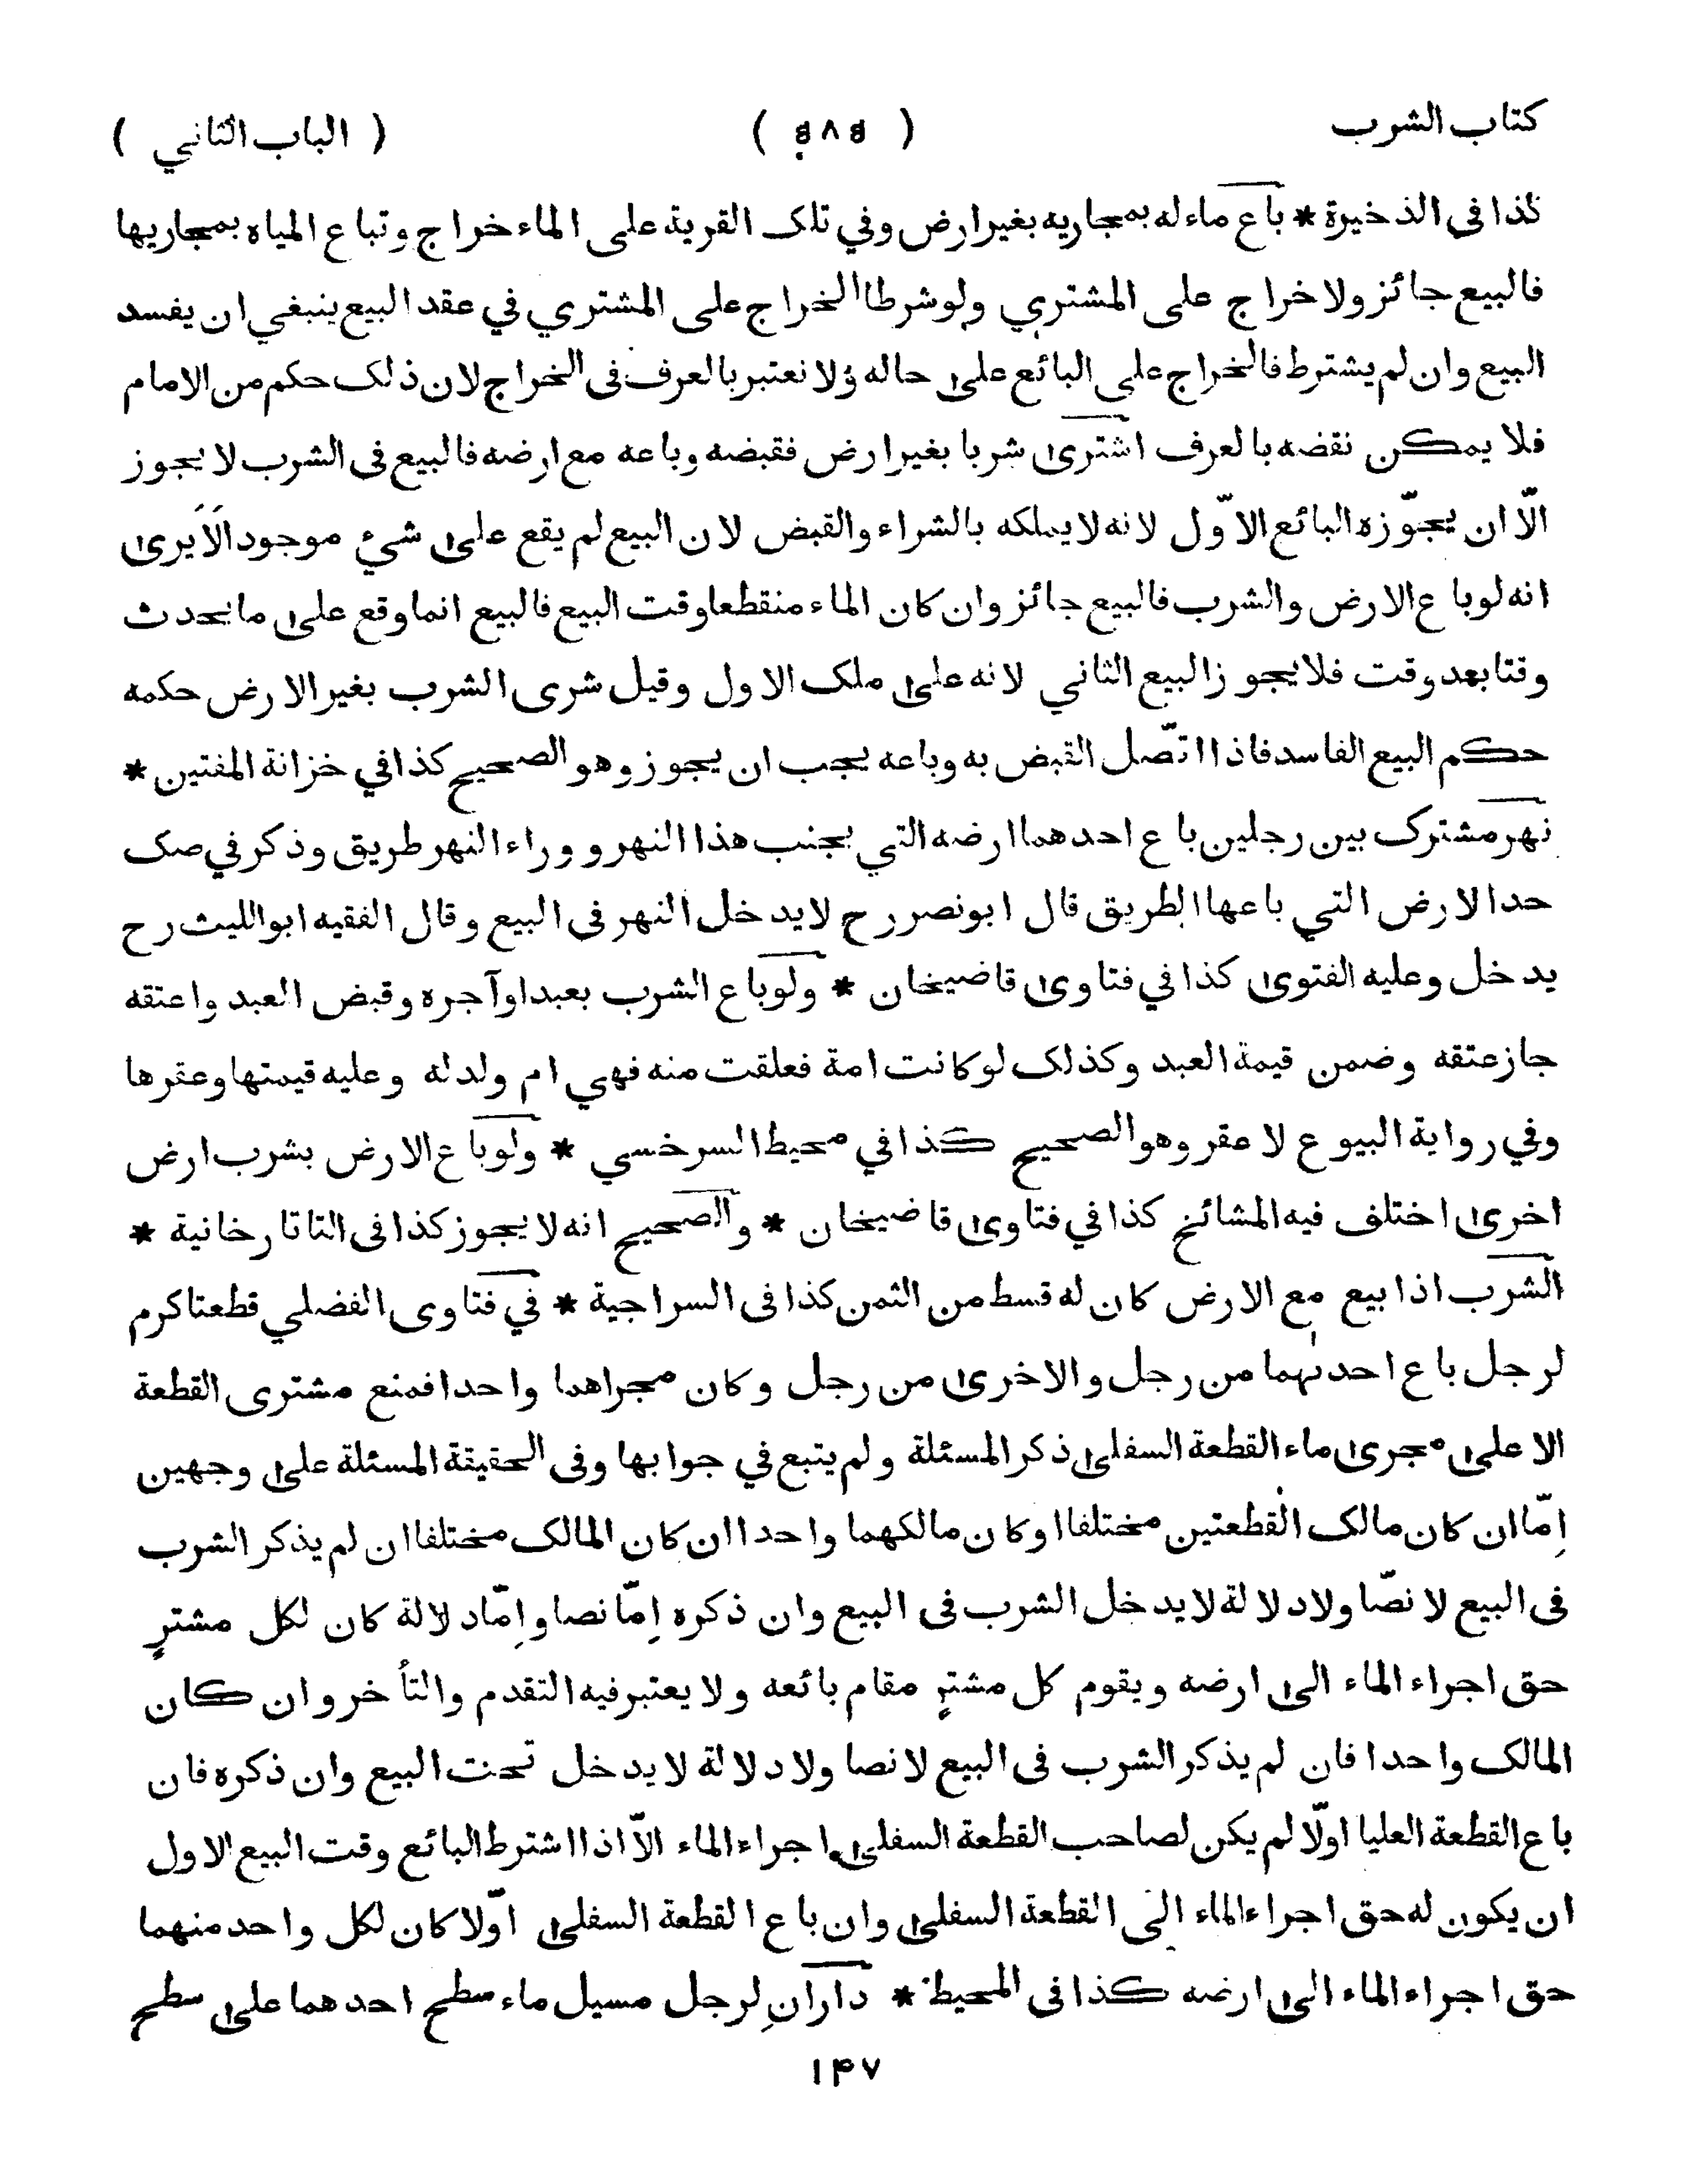 كتاب الشرب ( ٥٨٥ ) ( الباب الثاني )
كذا فى الذخيرة * باع ماء له بمجاريه بغير ارض وفي تلك القرية على الماء خراج وتباع المياه بمجاريها
فالبيع جائز ولا خراج على المشتري ولو شرطا الخراج على المشتري في عقد البيع ينبغي ان يفسد
البيع وان لم يشترط فالخراج على البائع على حاله ولا نعتبر بالعرف فى الخراج لان ذلك حكم من الامام
فلا يمكن نقضه بالعرف اشترى شربا بغير ارض فقبضه وباعه مع ارضه فالبيع فى الشرب لا يجوز
الّا ان يجوّزه البائع الاوّل لانه لا يملكه بالشراء والقبض لان البيع لم يقع على شيء موجود الَا يرى
انه لو باع الارض والشرب فالبيع جائز وان كان الماء منقطعا وقت البيع فالبيع انما وقع على ما يحدث
وقتا بعد وقت فلا يجوز البيع الثاني لانه على ملك الاول وقيل شرى الشرب بغير الارض حكمه
حكم البيع الفاسد فاذا اتّصل القبض به وباعه يجب ان يجوز وهو الصحيح كذا في خزانة المفتين *
نهر مشترك بين رجلين باع احدهما ارضه التي بجنب هذا النهر و وراء النهر طريق وذكر في صك
حد الارض التي باعها الطريق قال ابو نصر رح لا يدخل النهر فى البيع وقال الفقيه ابو الليث رح
يدخل وعليه الفتوى كذا في فتاوى قاضيخان * ولو باع الشرب بعبد او آجره وقبض العبد واعتقه
جاز عتقه وضمن قيمة العبد وكذلك لو كانت امة فعلقت منه فهي ام ولد له وعليه قيمتها وعقرها
وفي رواية البيوع لا عقر وهو الصحيح كذا في محيط السرخسي * ولو باع الارض بشرب ارض
اخرى اختلف فيه المشائخ كذا في فتاوى قاضيخان * والصحيح انه لا يجوز كذا فى التاتارخانية *
الشرب اذا بيع مع الارض كان له قسط من الثمن كذا فى السراجية * في فتاوى الفضلي قطعتا كرم
لرجل باع احدٮهما من رجل والاخرى من رجل وكان مجراهما واحدا فمنع مشترى القطعة
الاعلى مجرى ماء القطعة السفلى ذكر المسئلة ولم يتبع في جوابها وفى الحقيقة المسئلة على وجهين
اِمّا ان كان مالك القطعتين مختلفا او كان مالكهما واحدا ان كان المالك مختلفا ان لم يذكر الشرب
فى البيع لا نصّا ولا دلالة لا يدخل الشرب فى البيع وان ذكره اِمّا نصا واِمّا دلالة كان لكل مشترٍ
حق اجراء الماء الى ارضه ويقوم كل مشترٍ مقام بائعه ولا يعتبر فيه التقدم والتأخر وان كان
المالك واحدا فان لم يذكر الشرب فى البيع لا نصا ولا دلالة لا يدخل تحت البيع وان ذكره فان
باع القطعة العليا اوّلا لم يكن لصاحب القطعة السفلى اجراء الماء الاّ اذا اشترط البائع وقت البيع الاول
ان يكون له حق اجراء الماء الى القطعة السفلى وان باع القطعة السفلى اوّلا كان لكل واحد منهما
حق اجراء الماء الى ارضه كذا فى المحيط * دارانِ لرجل مسيل ماء سطح احدهما على سطح
١۴٧